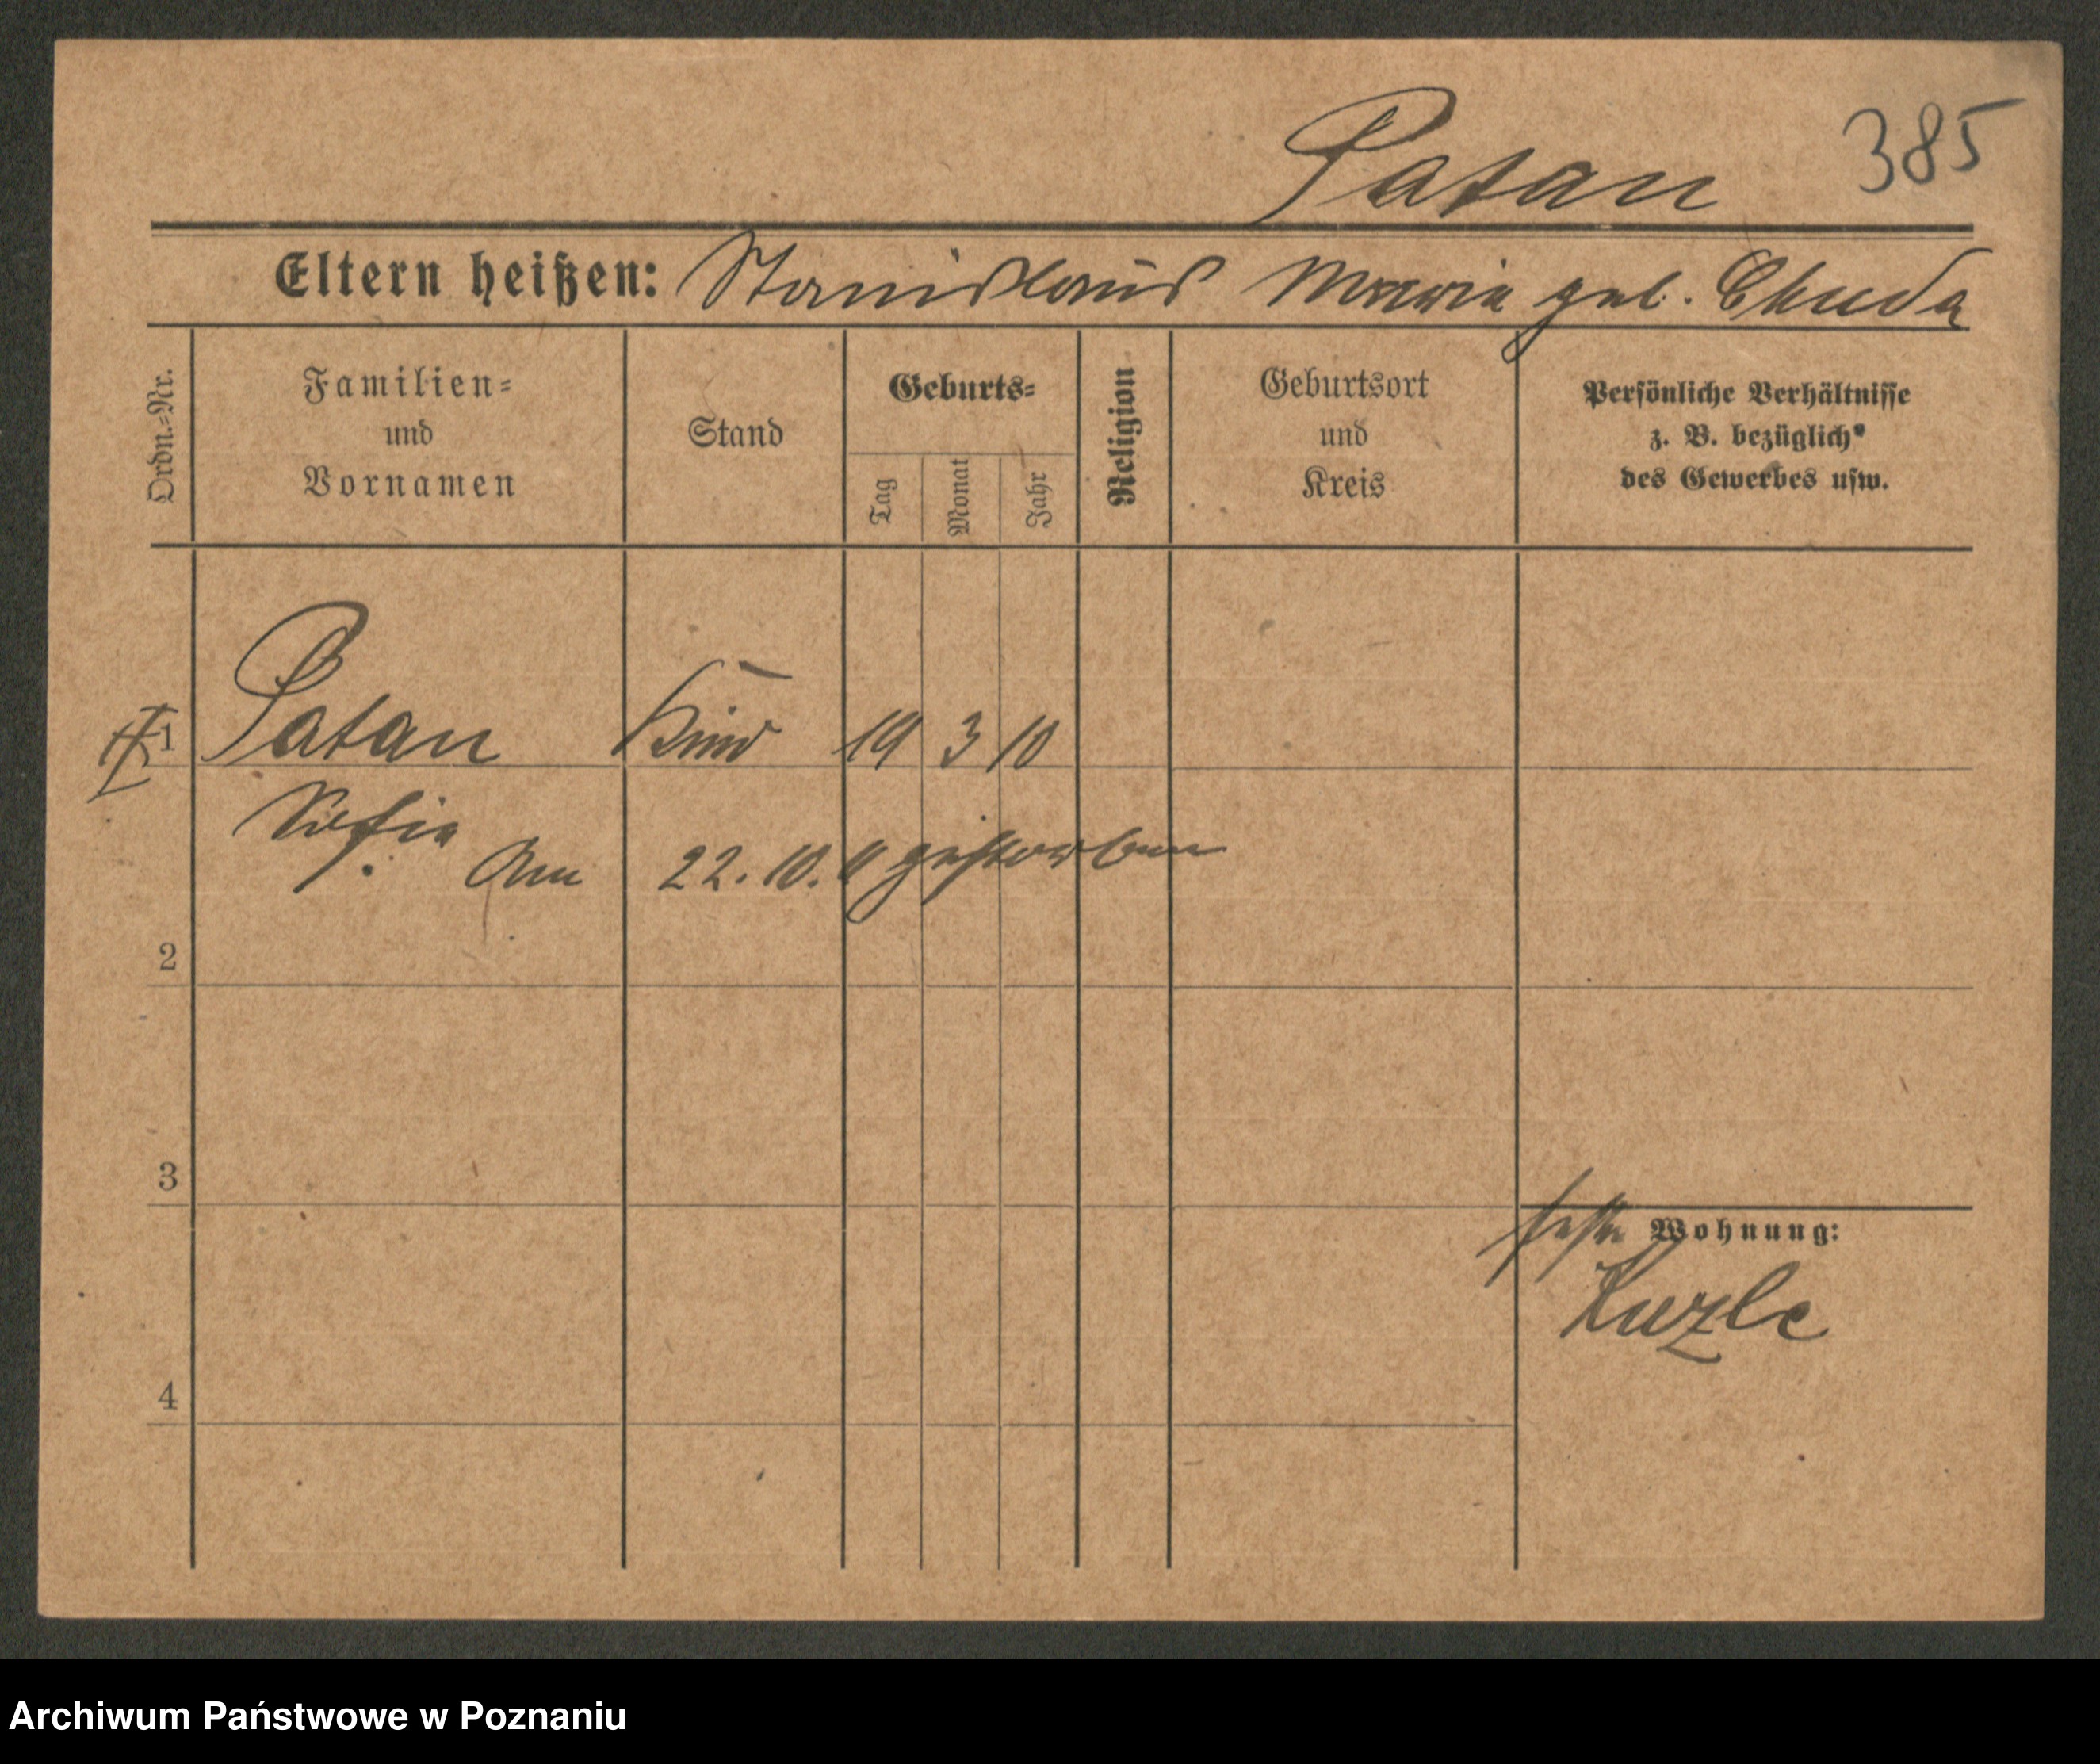 Patan 385
Eltern heißen: Stanislaus Maria geb. Chuda
Ordn.=Nr.
Familien=
und
Vornamen
Stand
Geburts=
Tag
Monat
Jahr
Religion
Geburtsort
und
Kreis
Persönliche Verhältnisse
z. B. bezüglich
des Gewerbes usw.
1 Patan Kind 19 3 10
Sofia
Am 22. 10. 11 gestorben
2
3
Wohnung:
Kuzle
4
Archiwum Państwowe w Poznaniu